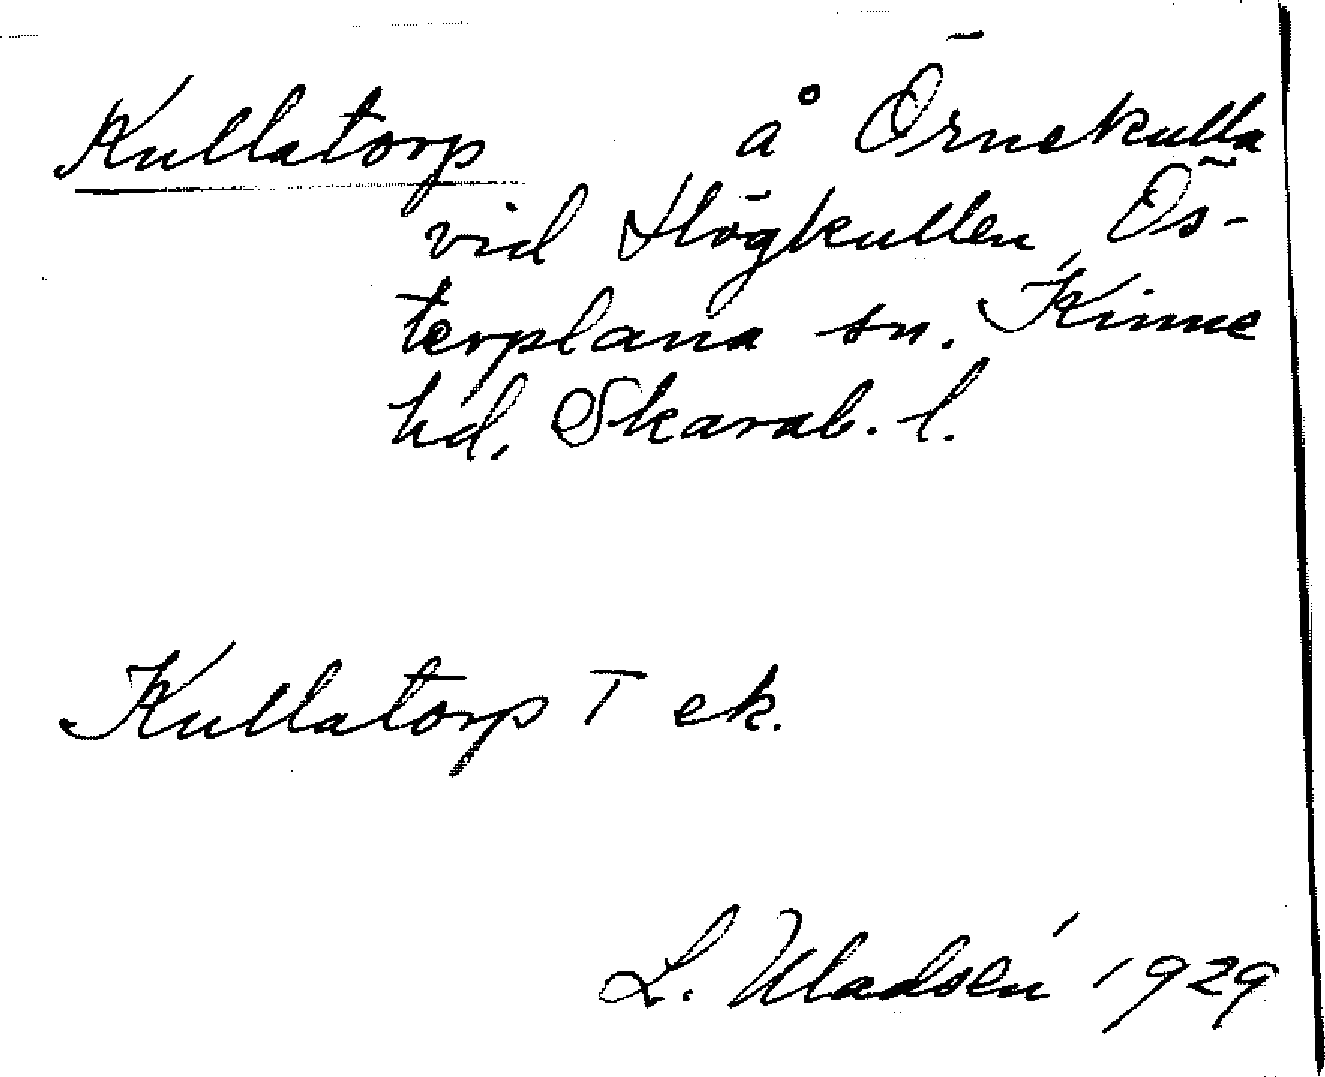 Kullatorp å Örnekulla
vid Högkullen, Ös-
terplana sn. Kinne
hd. Skarab. l.
Kullatorp T ek.
L. Uladsén 1929